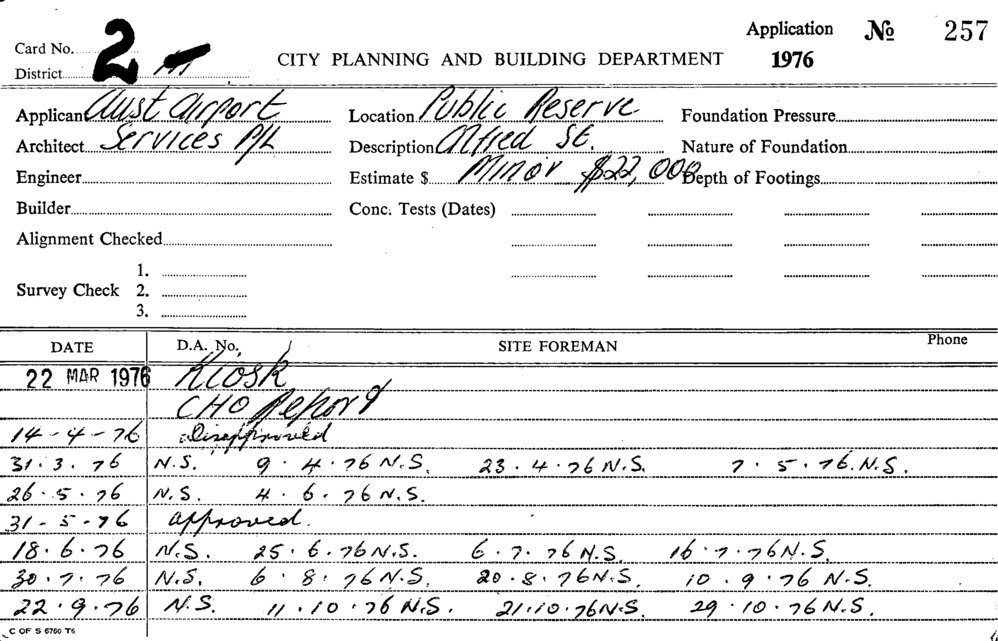 Application № 257
Card No. 2
CITY PLANNING AND BUILDING DEPARTMENT 1976
District
Applicant Aust Airport Location Public Reserve Foundation Pressure
Architect Services P/L Description Alfred St. Nature of Foundation
Engineer Estimate $ Minor $22,000 Depth of Footings
Builder Conc. Tests (Dates)
Alignment Checked
1.
Survey Check 2.
3.
DATE D.A. No. SITE FOREMAN Phone
22 MAR 1976 Kiosk
CHO Report
14-4-76 Disapproved
31.3.76 N.S. 9.4.76 N.S. 23.4.76 N.S. 7.5.76. N.S.
26.5.76 N.S. 4.6.76 N.S.
31-5-76 approved.
18.6.76 N.S. 25.6.76 N.S. 6.7.76 N.S. 16.7.76 N.S.
30.7.76 N.S. 6.8.76 N.S. 20.8.76 N.S. 10.9.76 N.S.
22.9.76 N.S. 11.10.76 N.S. 21.10.76 N.S. 29.10.76 N.S.
C OF S 6760 T6